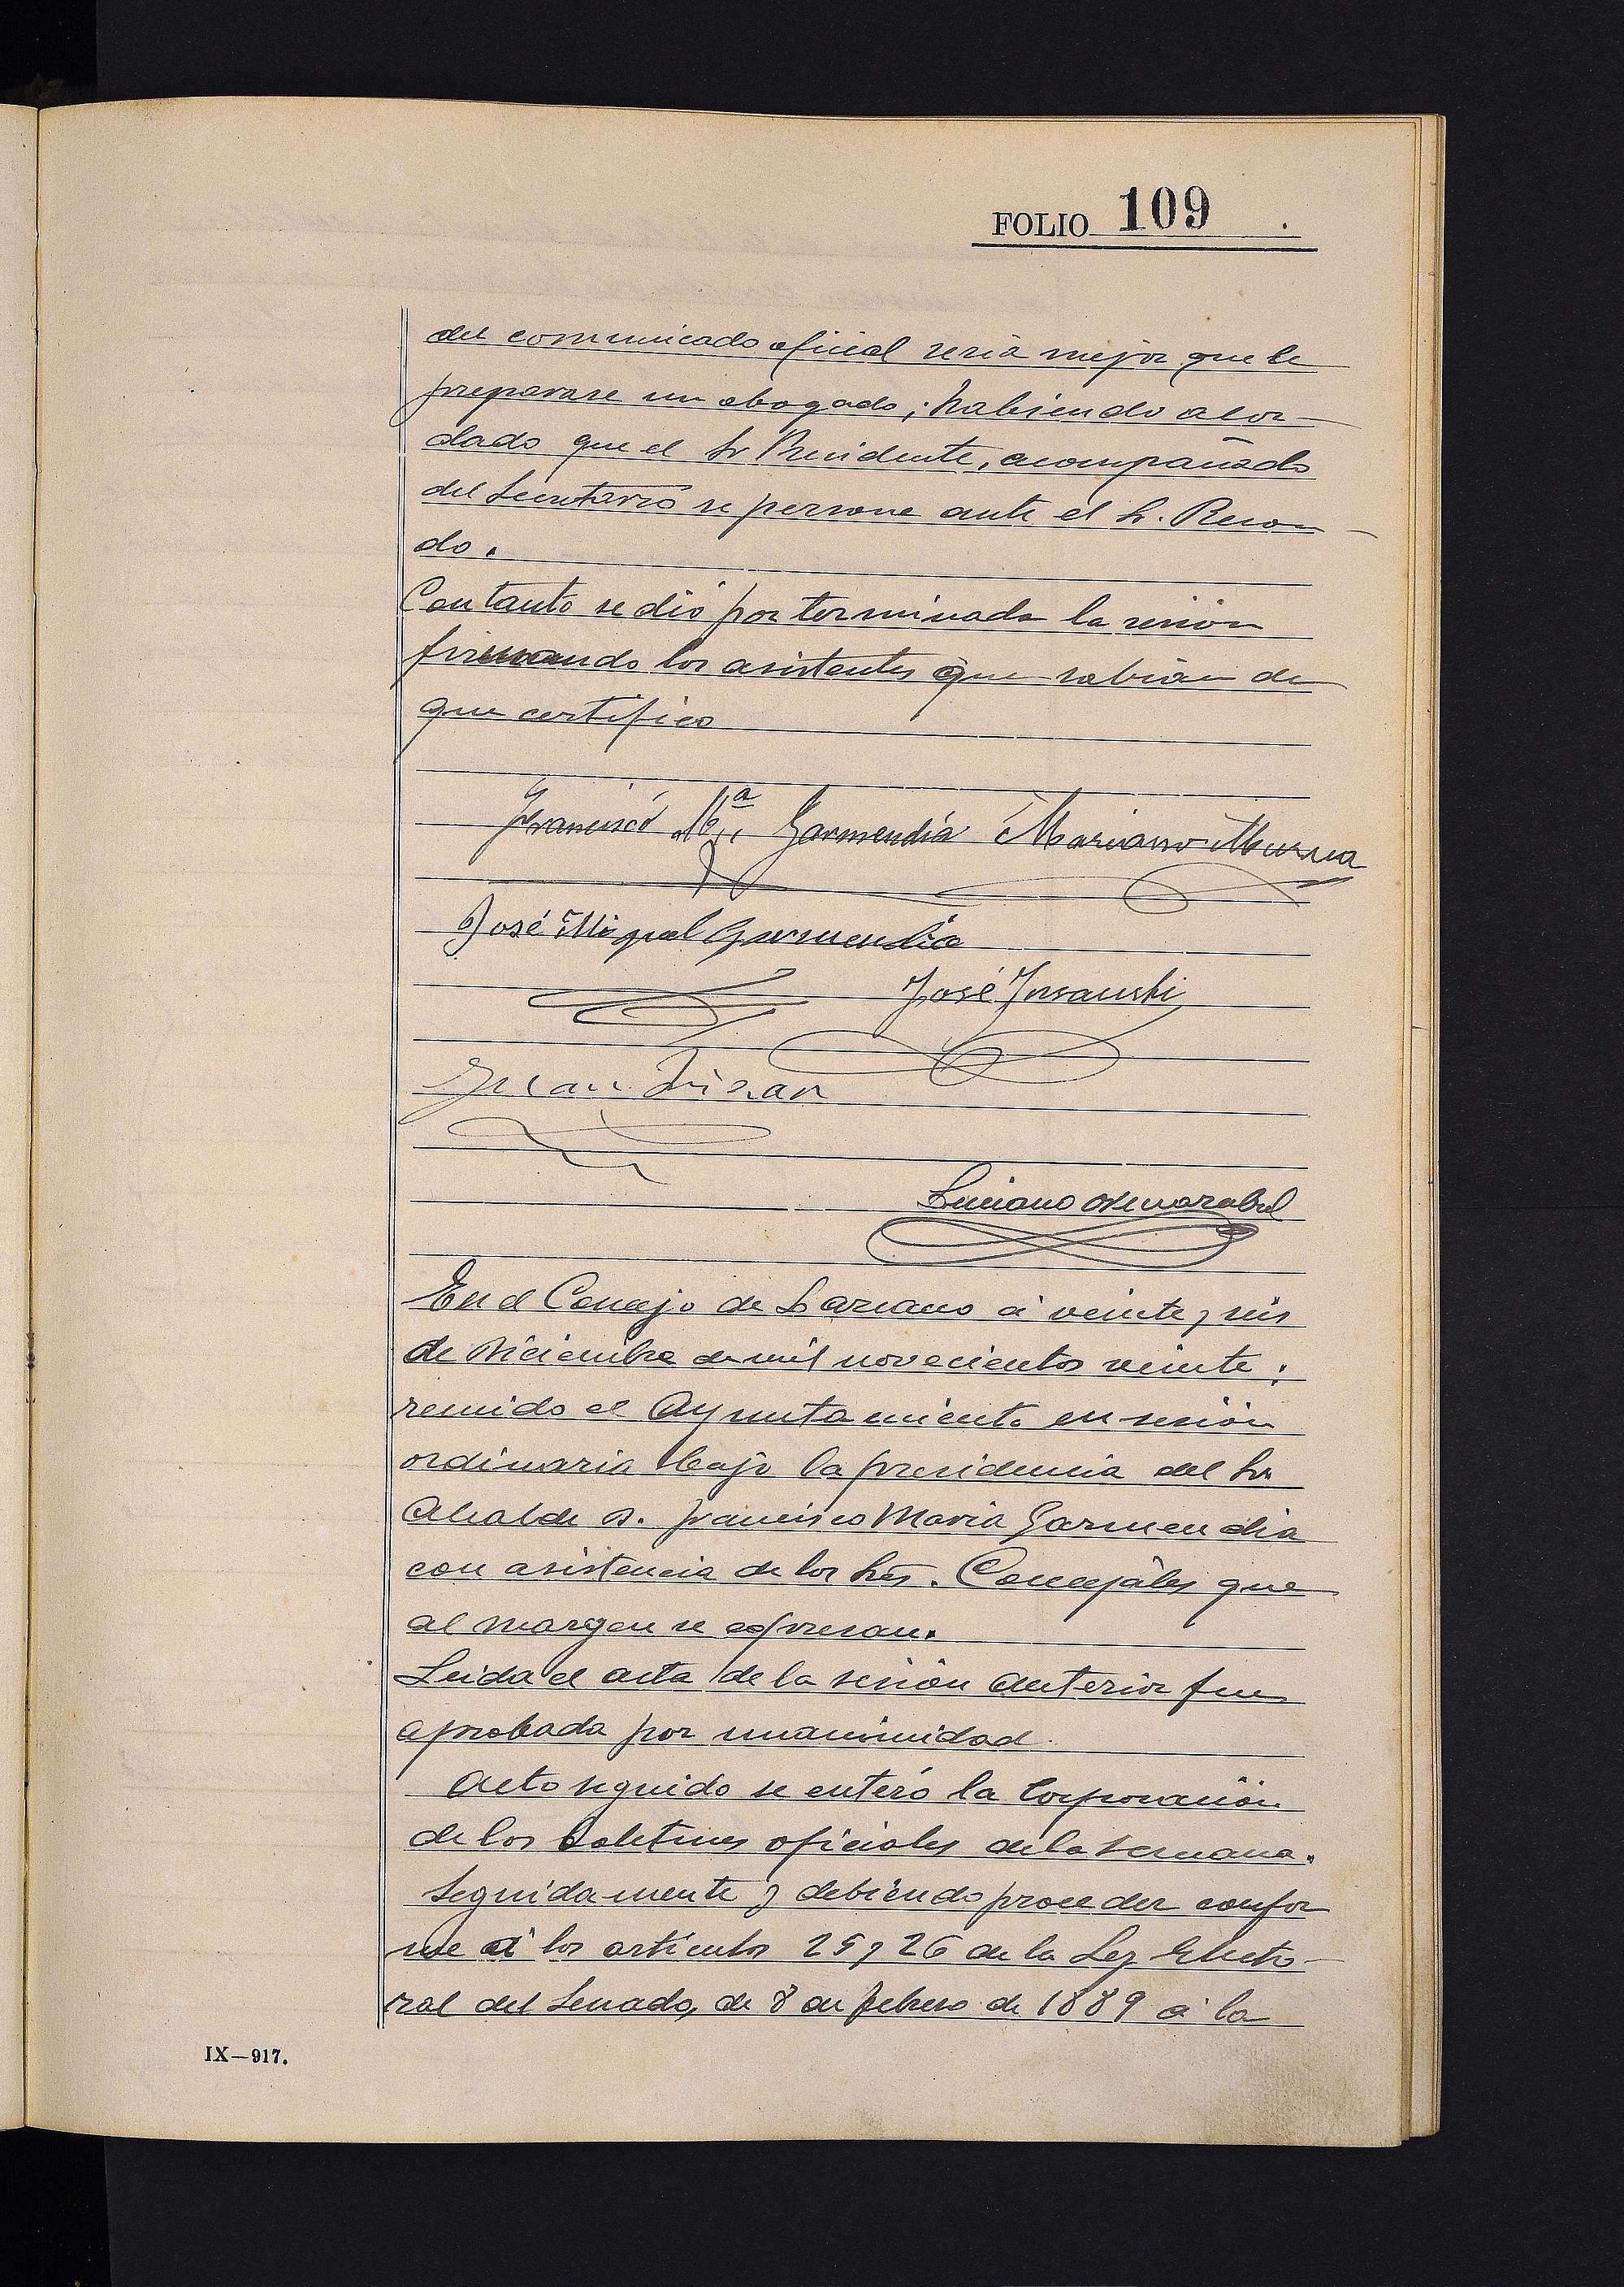 FOLIO 109
del comunicado oficial seria mejor que le
preparase un abogado; habiendo acor-
dado que el Sr Presidente, acompañado
del Secretario se persone ante el Sr. Recon-
do.
Con tanto se dió por terminada la sesion
firmando los asistentes que sabian de
que certifico
Francisco Mª Garmendia Mariano
José Miguel Garmendia
José Insausti
Juan
Luciano
En el Concejo de Lazcano á veinte y seis
de Diciembre de mil novecientos veinte;
reunido el Ayuntamiento en sesión
ordinaria bajo la presidencia del Sr
Alcalde D. Francisco Maria Garmendia
con asistencia de los Sres. Concejales que
al margen se espresan.
Leida el acta de la sesión anterior fue
aprobada por unanimidad.
Acto seguido se enteró la Corporación
de los boletines oficiales de la semana.
Seguidamente y debiendo proceder confor
me á los artículos 25 y 26 de la Ley Electo-
ral del Senado, de 8 de febrero de 1889 á la
IX—917.